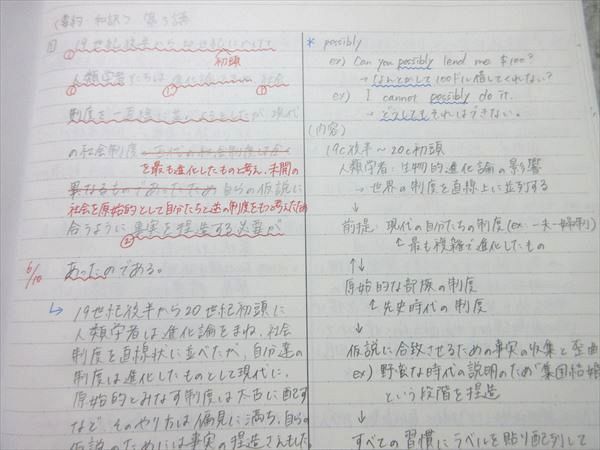 <要約・和訳> 第3講
19世紀後半から20世紀にかけて
初頭
人類学者たちは進化論 社会
制度を一直線に並べ たが 現代
の社会制度
を最も進化したものと考え、未開の
異なるものであったため 自らの仮説に
社会を原始的として自分たちと逆の制度をもつと考えたため
合うように事実を捏造する必要が
6/10
あったのである。
↳ 19世紀後半から20世紀初頭に
人類学者は進化論をまね、社会
制度を直線状に並べたが、自分達の
制度は進化したものとして現代に、
原始的とみなす制度は太古に配す
など、そのやり方は偏見に満ち、自らの
仮説のためには事実の捏造さえもした
* possibly
ex) Can you possibly lend me $100?
→なんとかして100ドル貸してくれない?
ex) I cannot possibly do it.
→どうしてもそれはできない。
(内容)
19c後半〜20c初頭
人類学者:生物的進化論の影響
→世界の制度を直線上に並列する
↓
前提:現代の自分たちの制度(ex:一夫一婦制)
↑最も複雑で進化したもの
↑↓
原始的な部族の制度
↑先史時代の制度
↓
仮説に合致させるための事実の収集と歪曲
ex) 野蛮な時代の説明のため"集団結婚
という段階を捏造
↓
すべての習慣にラベルを貼り配列して